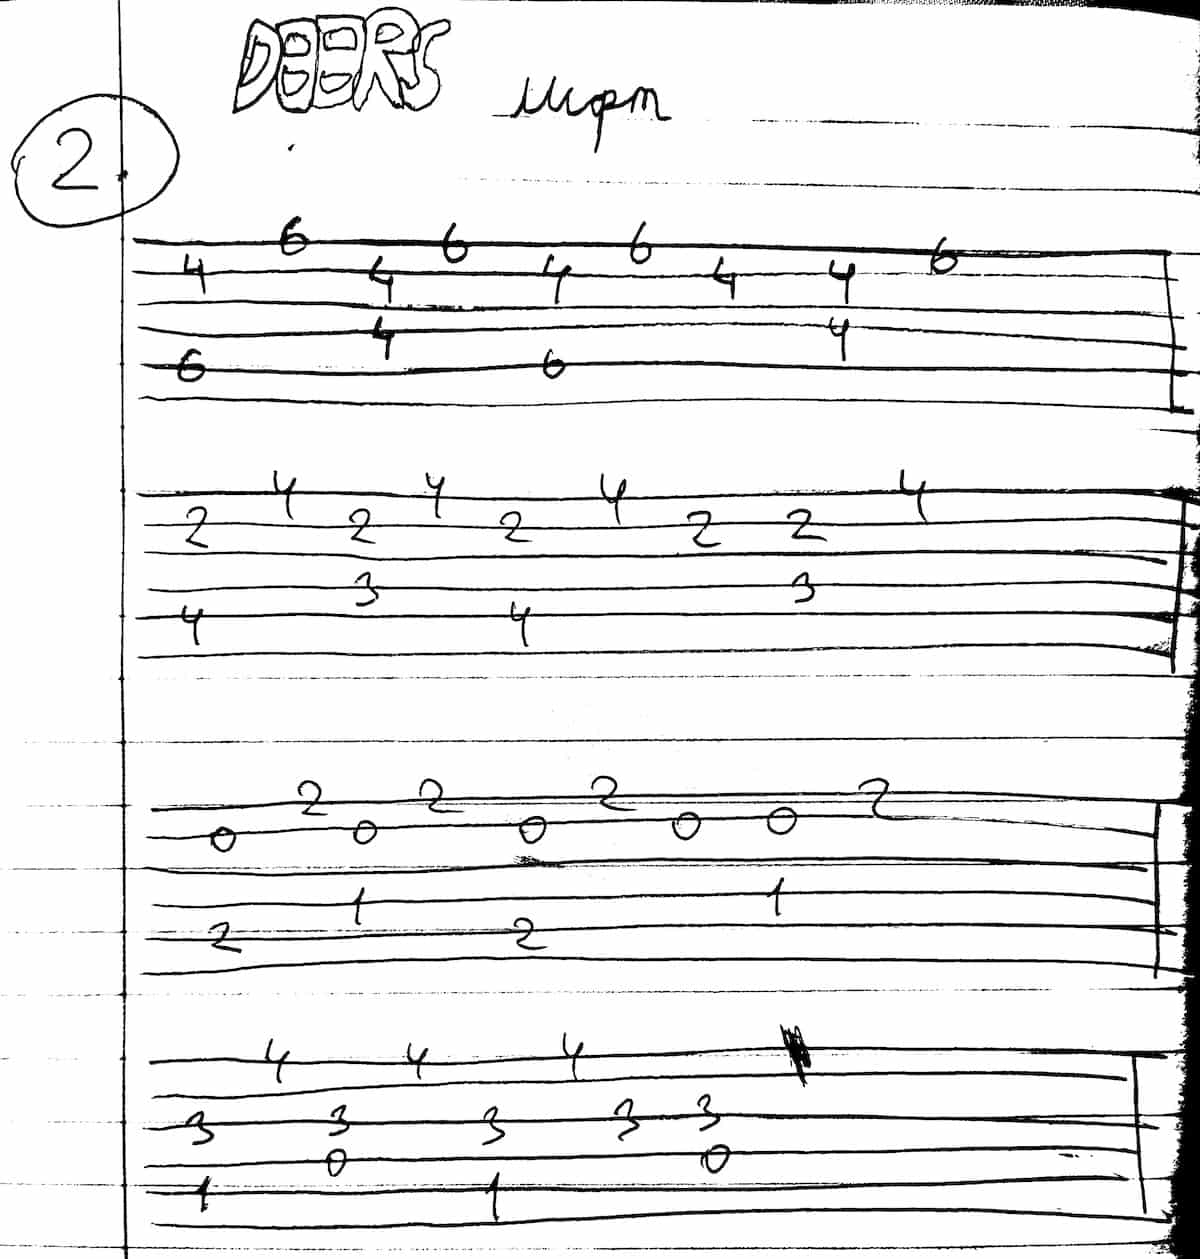 DEERS
2.
6 6 6 6
4 4 4 4 4
4 4
6 6
4 4 4 4
2 2 2 2 2
3 3
4 4
2 2 2 2
0 0 0 0 0
1 1
2 2
4 4 4
3 3 3 3 3
0 0
1 1